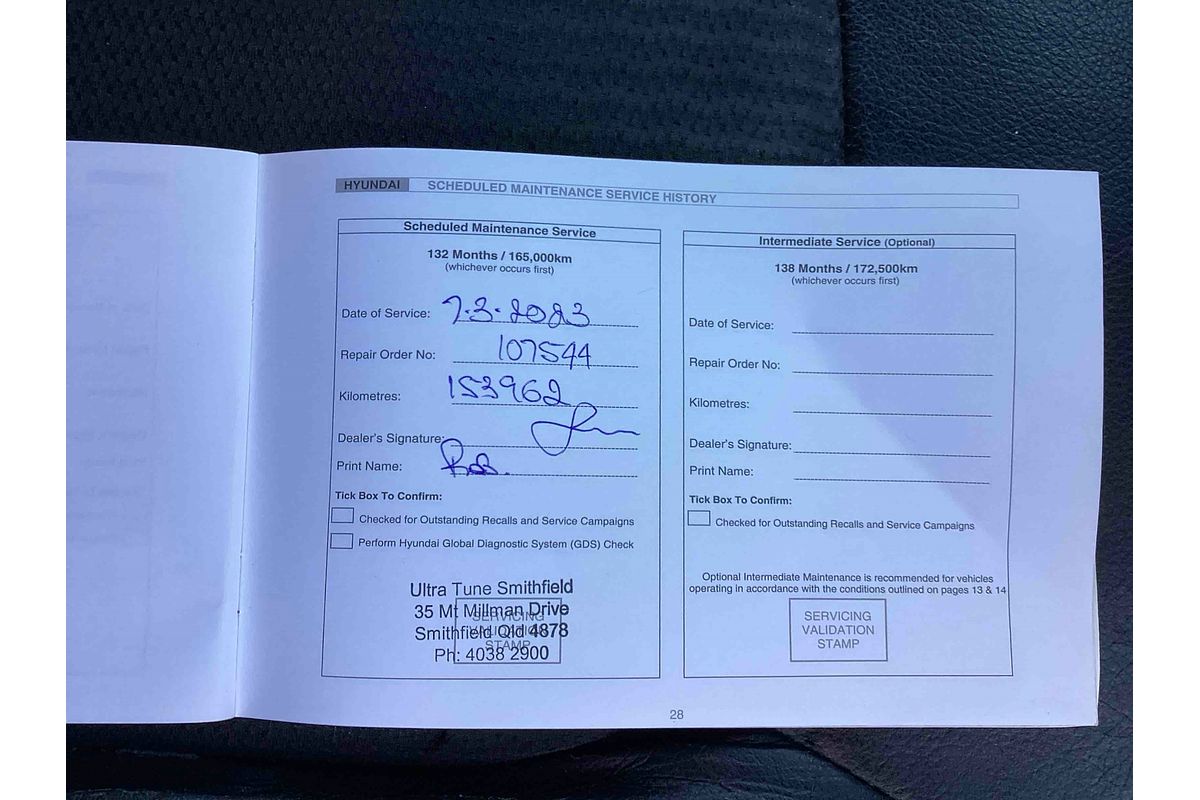 HYUNDAI SCHEDULED MAINTENANCE SERVICE HISTORY
Scheduled Maintenance Service
132 Months / 165,000km
(whichever occurs first)
Date of Service: 7.3.2023
Repair Order No: 107544
Kilometres: 153962
Dealer's Signature:
Print Name: Rob.
Tick Box To Confirm:
Checked for Outstanding Recalls and Service Campaigns
Perform Hyundai Global Diagnostic System (GDS) Check
Ultra Tune Smithfield
35 Mt Millman Drive
Smithfield Qld 4878
Ph: 4038 2900
SERVICING
VALIDATION
STAMP
Intermediate Service (Optional)
138 Months / 172,500km
(whichever occurs first)
Date of Service:
Repair Order No:
Kilometres:
Dealer's Signature:
Print Name:
Tick Box To Confirm:
Checked for Outstanding Recalls and Service Campaigns
Optional Intermediate Maintenance is recommended for vehicles
operating in accordance with the conditions outlined on pages 13 & 14
SERVICING
VALIDATION
STAMP
28